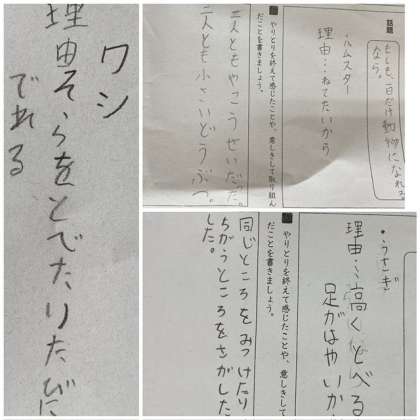 ワシ
理由そらをとべたりたびに
でれる
話題
もしも、一日だけ動物になれる
なら。
・ハムスター
理由：ねてたいから
やりとりを終えて感じたことや、意しきして取り組ん
だことを書きましょう。
二人ともやこうせいだった。
二人とも小さいどうぶつ。
・うさぎ
理由：高くとべる
足がはやいか
やりとりを終えて感じたことや、意しきして
だことを書きましょう。
同じところをみつけたり
ちがうところをさがした
した。